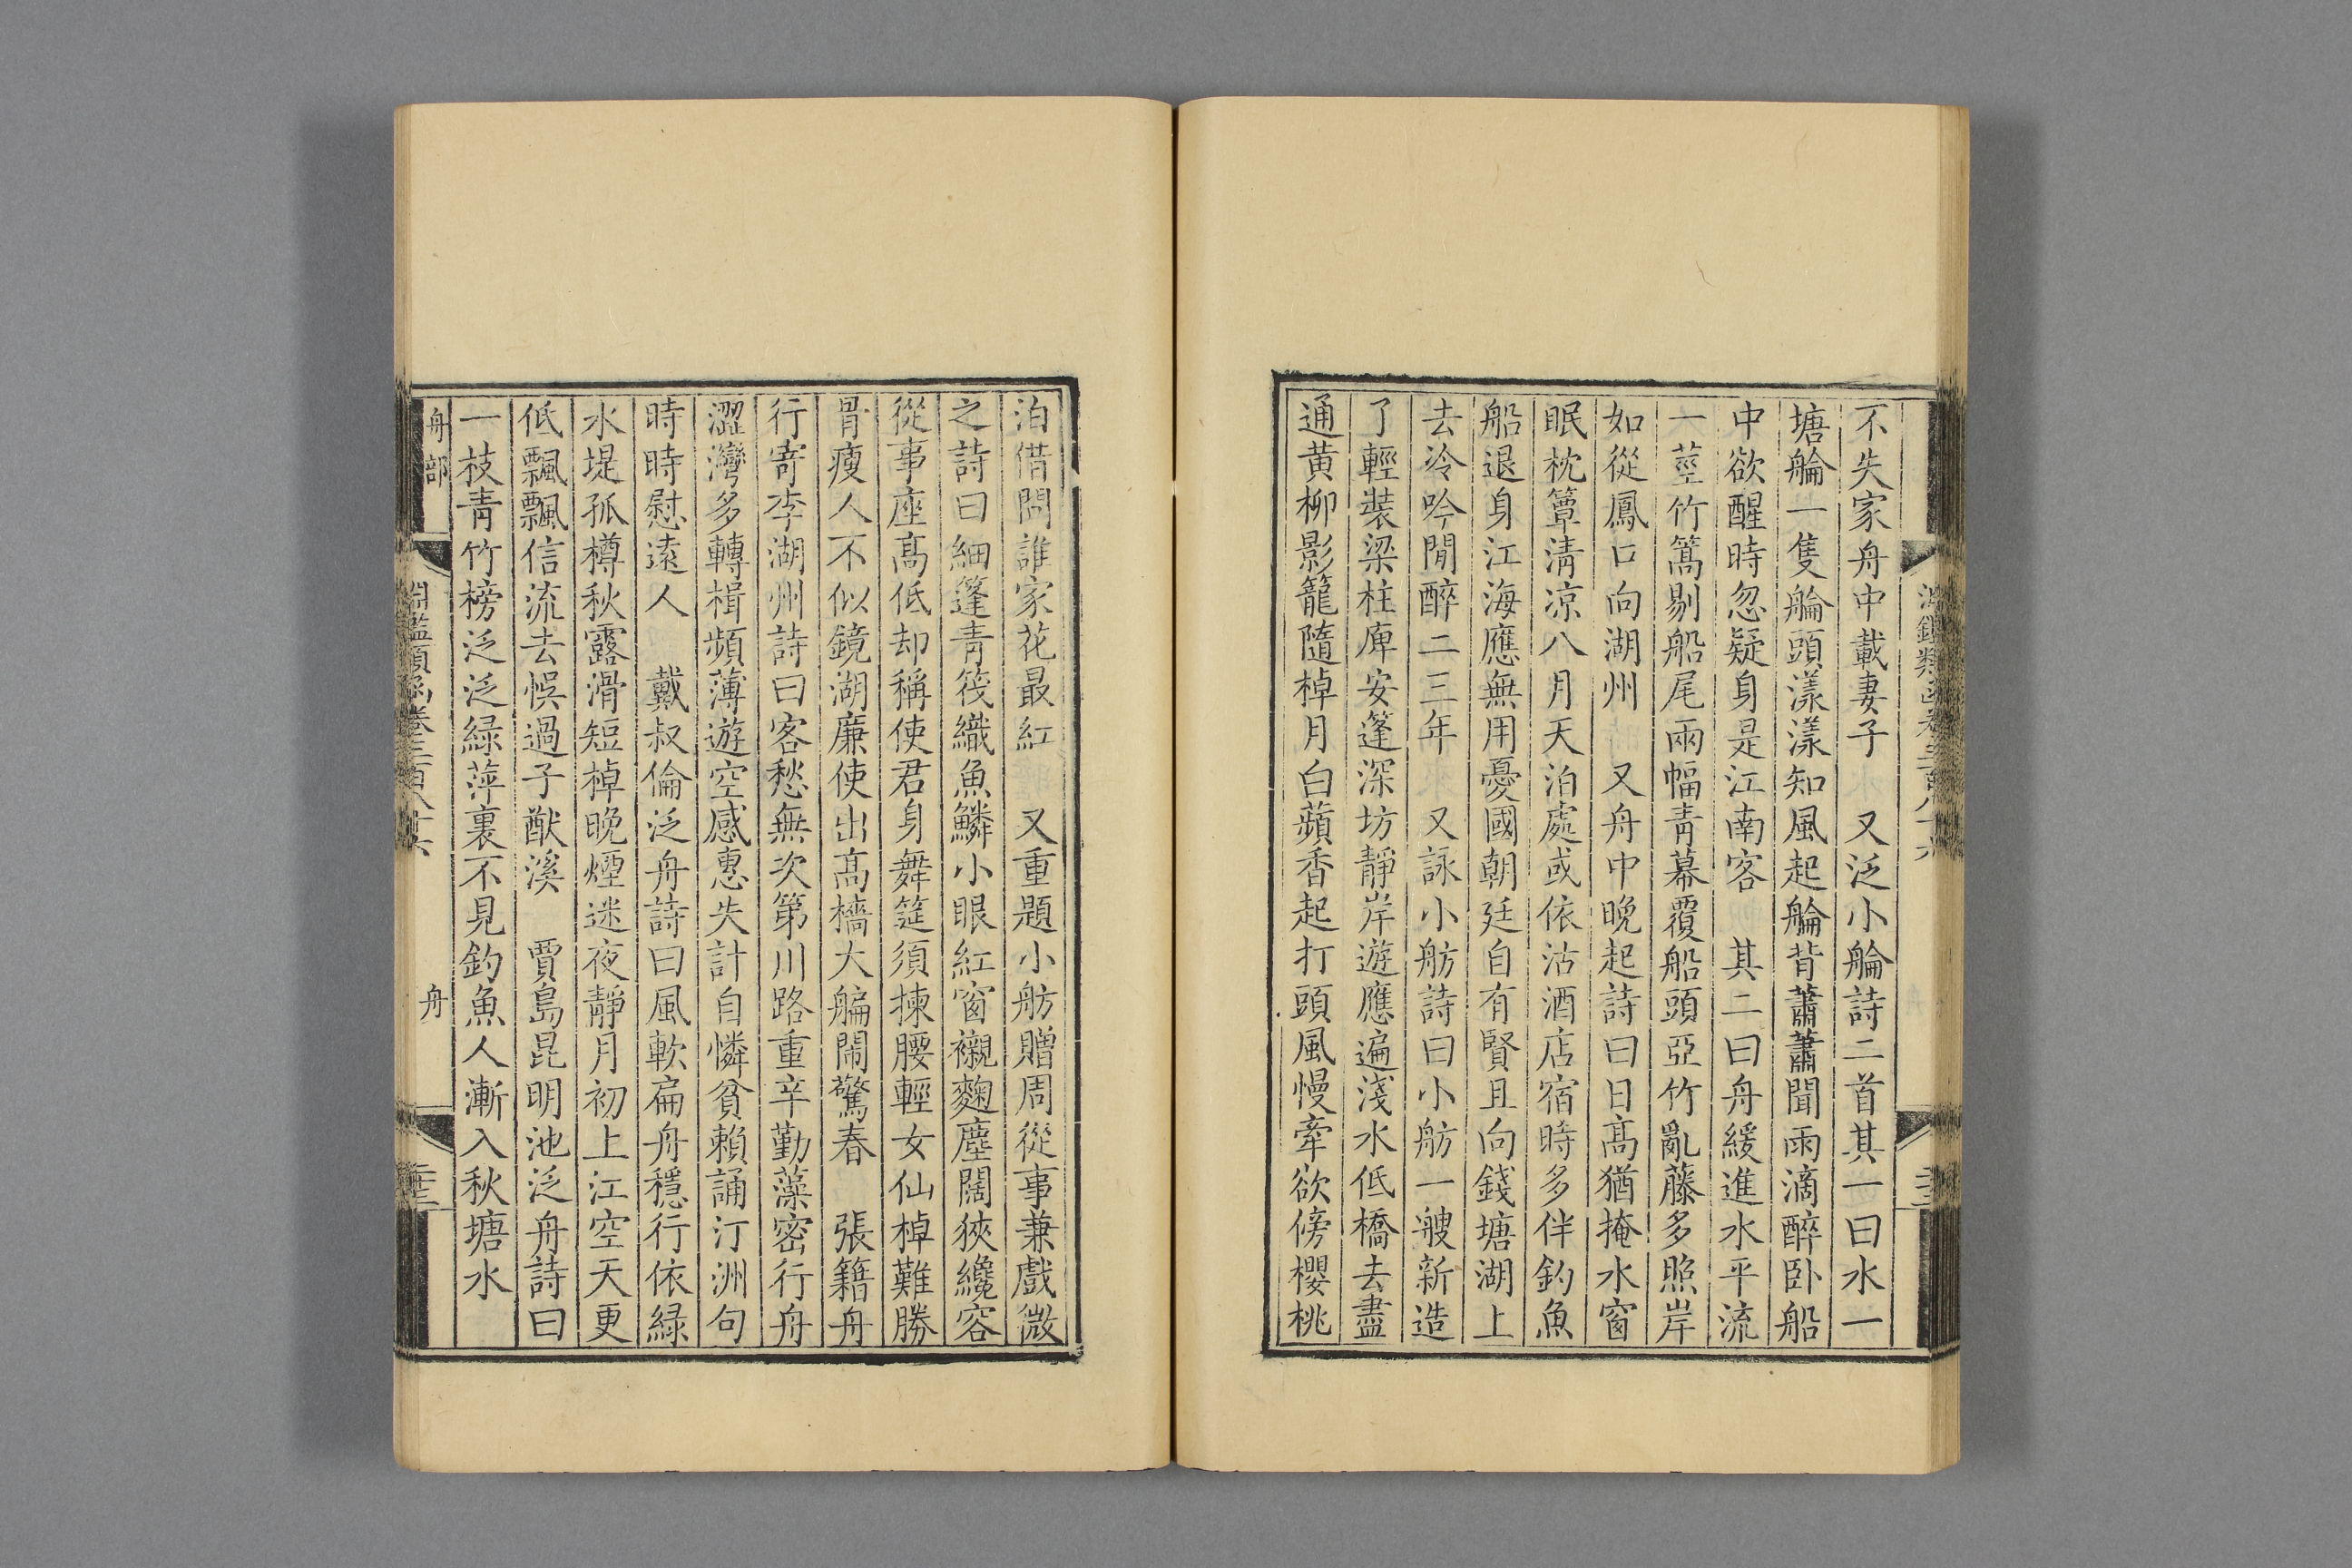 不失家舟中載妻子　又泛小艑詩二首其一曰水一
塘艑一隻艑頭漾漾知風起艑背蕭蕭聞雨滴醉卧船
中欲醒時忽疑身是江南客　其二曰舟緩進水平流
一莖竹篙剔船尾兩幅青幕覆船頭亞竹亂藤多照岸
如從鳳口向湖州　又舟中晚起詩曰日髙猶掩水窗
眠枕簟淸凉八月天泊處或依沽酒店宿時多伴釣魚
船退身江海應無用憂國朝廷自有賢且向錢塘湖上
去泠吟閒醉二三年　又詠小舫詩曰小舫一艘新造
了輕裝梁柱庳安篷深坊靜岸遊應遍淺水低橋去盡
通黄柳影籠隨棹月白蘋香起打頭風慢牽欲傍櫻桃
泊借問誰家花最紅　又重題小舫贈周從事兼戲微
之詩曰細篷青筏織魚鱗小眼紅窗襯麴塵闊狹纔容
從事座髙低却稱使君身舞筵須揀腰輕女仙棹難勝
骨瘦人不似鏡湖廉使出髙檣大艑鬧驚春　張籍舟
行寄李湖州詩曰客愁無次第川路重辛勤藻密行舟
澀灣多轉楫頻薄遊空感惠失計自憐貧賴誦汀洲句
時時慰遠人　戴叔倫泛舟詩曰風軟扁舟穩行依緑
水堤孤樽秋露滑短棹晚煙迷夜靜月初上江空天更
低飄飄信流去悞過子猷溪　賈島昆明池泛舟詩曰
一枝青竹榜泛泛緑萍裏不見釣魚人漸入秋塘水
舟部
淵鑑類函卷三百八十六
舟